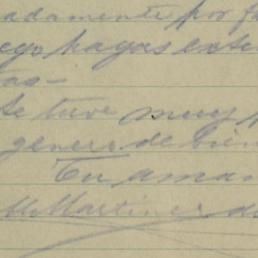 adamente por f
ego hagas exte
tas-
te tuve muy p
genero de bien
Tu aman
M Martinez de